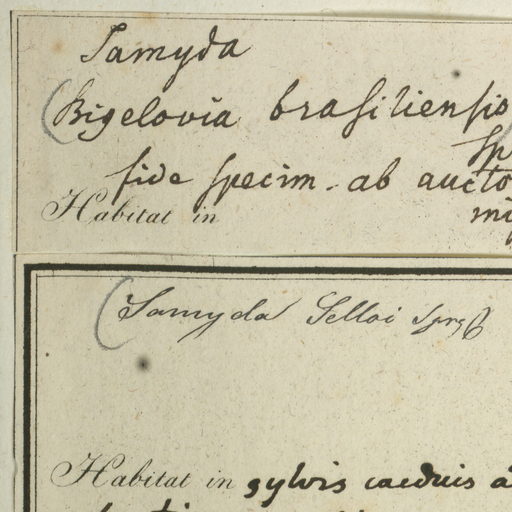 Samyda
Bigelovia brasiliensis
Sp
fide specim. ab aucto
Habitat in mi
Samyda Selloi Sprg
Habitat in sylvis caeduis a